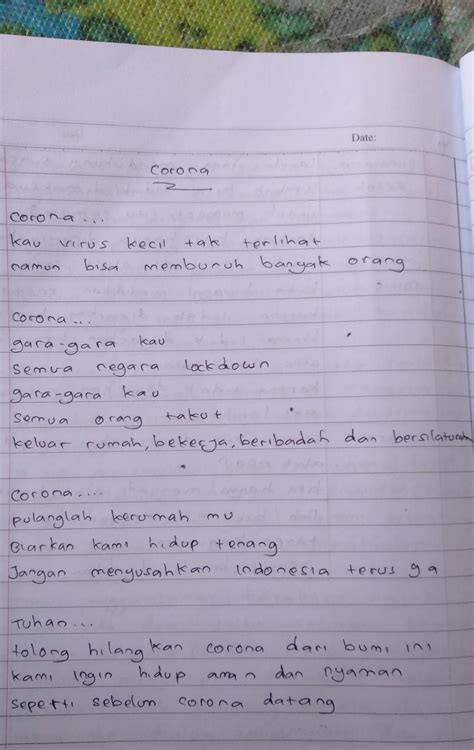 Date:
Corona
Corona...
kau virus kecil tak terlihat
namun bisa membunuh banyak orang
Corona...
gara-gara kau
semua negara lockdown
gara-gara kau
semua orang takut
keluar rumah, bekerja, beribadah dan bersilaturahm
Corona....
pulanglah kerumah mu
Biarkan kami hidup tenang
Jangan menyusahkan Indonesia terus ya
Tuhan...
tolong hilangkan corona dari bumi ini
kami ingin hidup aman dan nyaman
seperti sebelum corona datang